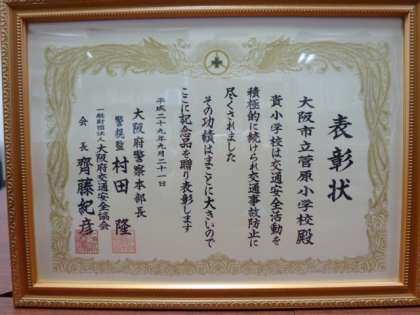 表彰状
大阪市立菅原小学校殿
貴小学校は交通安全活動を
積極的に続けられ交通事故防止に
尽くされました
その功績はまことに大きいので
ここに記念品を贈り表彰します
平成二十九年九月二十一日
大阪府警察本部長
警視監 村田隆
一般財団法人大阪府交通安全協会
会長 齊藤紀彦